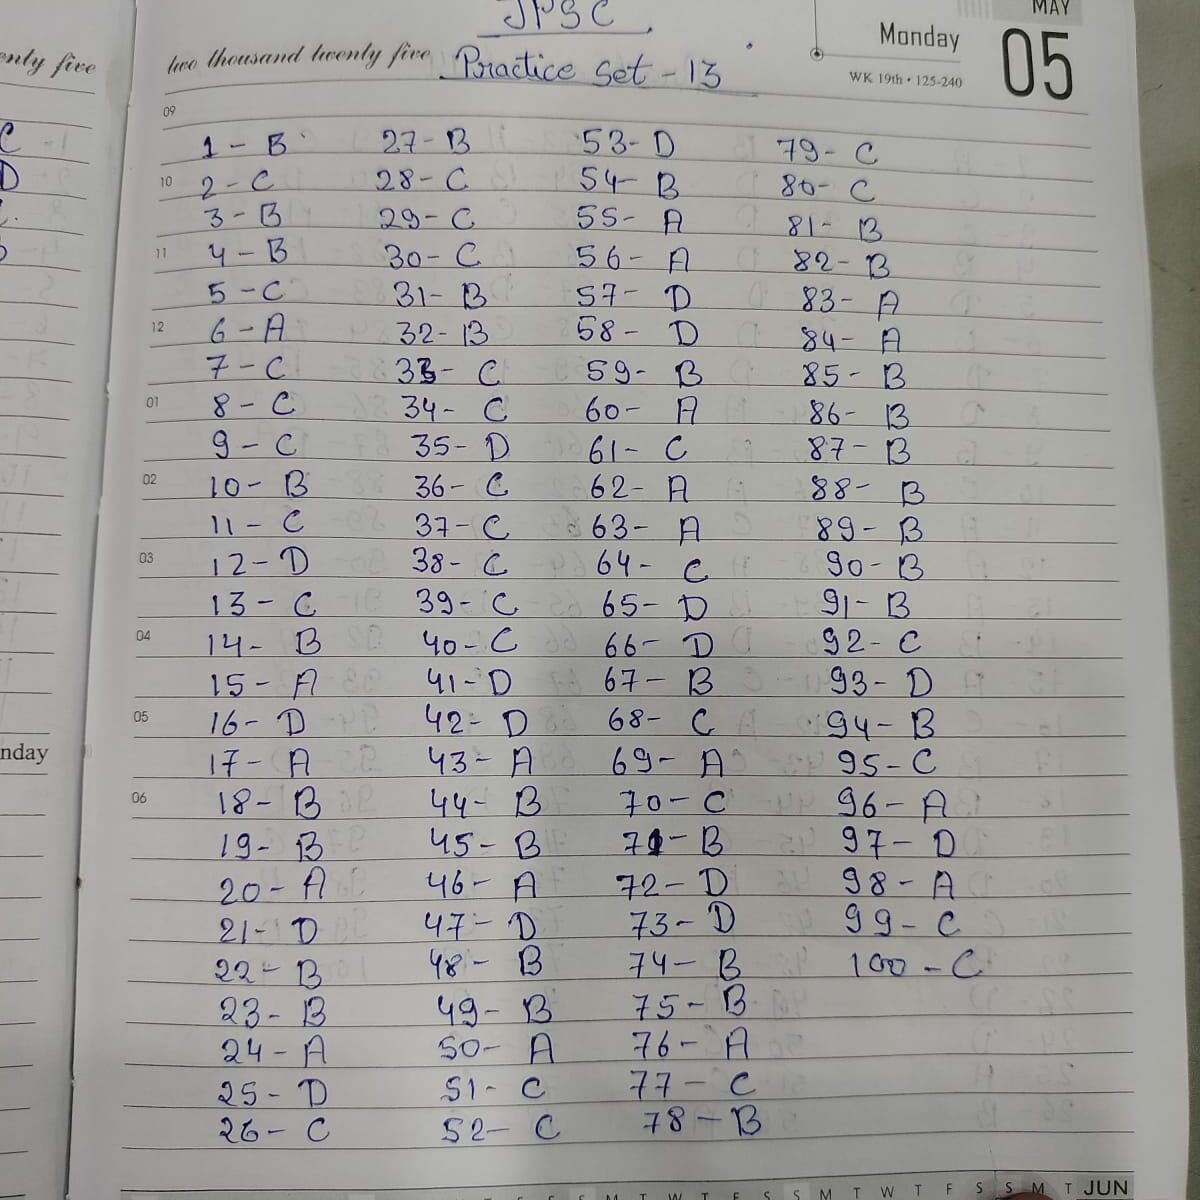 JPSC
MAY
Monday
05
two thousand twenty five
Practice Set - 13
WK 19th • 125-240
enty five
09
1 - B 27- B 53- D 79- C
10 2 - C 28- C 54- B 80- C
3 - B 29- C 55- A 81- B
11 4 - B 30- C 56- A 82- B
5 - C 31- B 57- D 83- A
12 6 - A 32- B 58- D 84- A
7 - C 33- C 59- B 85- B
01 8 - C 34- C 60- A 86- B
9 - C 35- D 61- C 87- B
02 10- B 36- C 62- A 88- B
11 - C 37- C 63- A 89- B
03 12- D 38- C 64- C 90- B
13 - C 39- C 65- D 91- B
04 14- B 40- C 66- D 92- C
15 - A 41- D 67- B 93- D
05 16- D 42- D 68- C 94- B
17- A 43- A 69- A 95- C
06 18- B 44- B 70- C 96- A
19- B 45- B 71- B 97- D
20- A 46- A 72- D 98- A
21- D 47- D 73- D 99- C
22- B 48- B 74- B 100 - C
23- B 49- B 75- B
24- A 50- A 76- A
25- D 51- C 77- C
26- C 52- C 78- B
nday
S S M T W T F S S M T W T F S S M T JUN